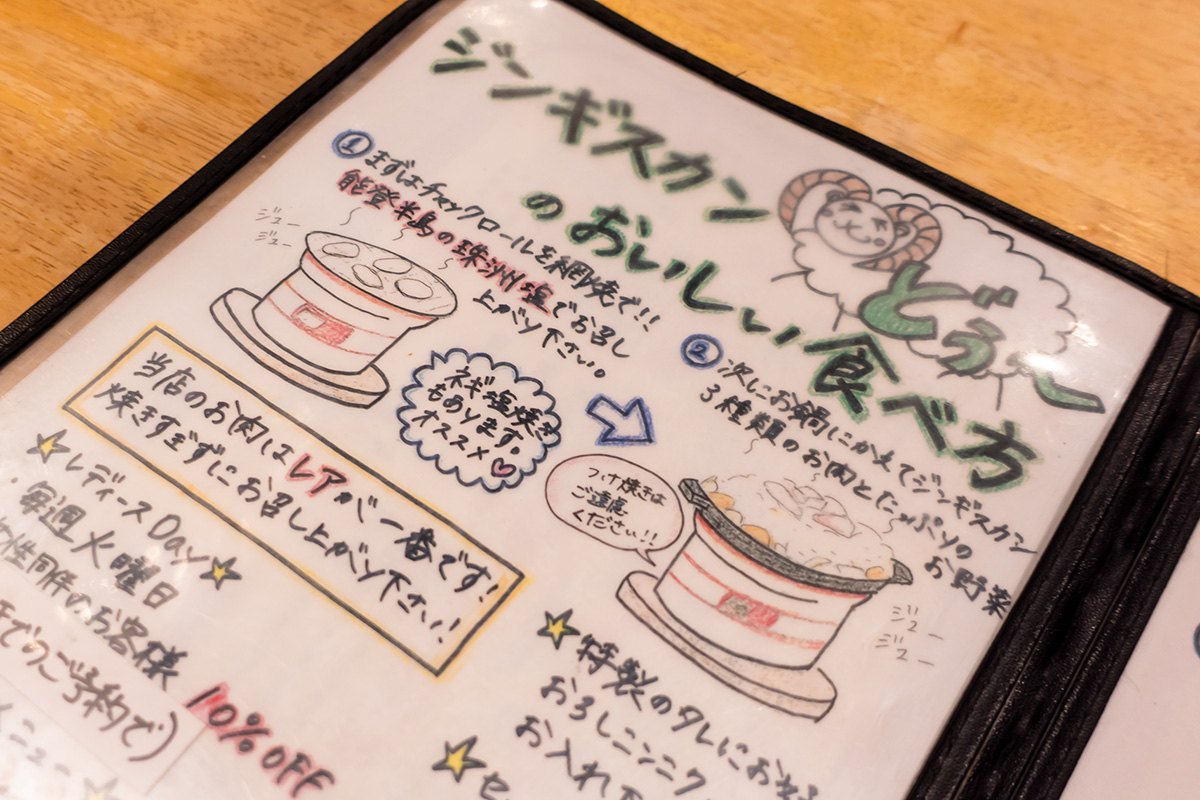 ジンギスカン
のおいしい食べ方
どぅ〜
① まずはチャックロールを網焼で!!
能登半島の珠洲塩でお召し
上がり下さい。
ジュー
ジュー
ネギ塩焼き
もあります。
オススメ♡
当店のお肉はレアが一番です!
焼きすぎずにお召し上がり下さい!
② 次にお鍋にかえてジンギスカン
3種類のお肉とたっぷりの
お野菜
つけ焼きは
ご遠慮
ください!!
ジュー
ジュー
☆レディースDay☆
・毎週火曜日
女性同伴のお客様
でのご予約で)
10%OFF
メニュー
☆特製のタレにお
おろしニンニク
お入れ下
☆セ